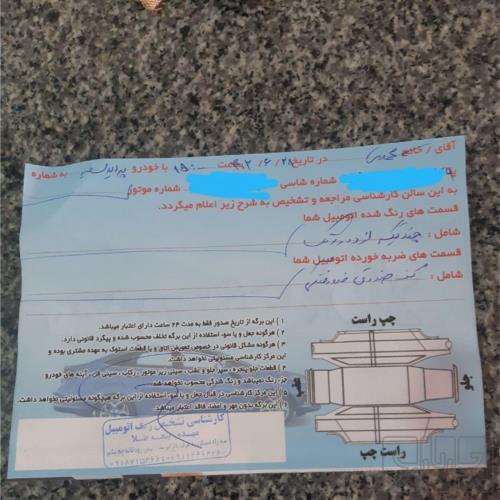 آقای / خانم محمدی در تاریخ ۴۲/۶/۲۸ ساعت ۱۵:۰۰ با خودرو به شماره
شماره شاسی شماره موتور
به این سالن کارشناسی مراجعه و تشخیص به شرح زیر اعلام میگردد.
قسمت های رنگ شده اتومبیل شما
شامل : چند لکه از دور رنگ
قسمت های ضربه خورده اتومبیل شما
شامل : کف صندوق
۱ ) این برگه از تاریخ صدور فقط به مدت ۲۴ ساعت دارای اعتبار میباشد.
۲ ) هرگونه جعل و یا سوء استفاده از این برگه تخلف محسوب شده و پیگرد قانونی دارد.
۳ ) هرگونه مشکل قانونی در خصوص تعویض اتاق و یا قطعات استوک به عهده مشتری بوده و
این مرکز کارشناسی مسئولیتی نخواهد داشت.
۴ ) قطعات جلو پنجره، سپر جلو و عقب، سینی زیر موتور، رکاب، سینی فن، آینه های خودرو
جزء رنگ نمیباشد و رنگ شدگی محسوب نخواهد شد.
۵ ) این مرکز کارشناسی در قبال جعل و یا سوء استفاده از این برگه هیچگونه مسئولیتی نخواهد داشت.
۶ ) این برگه بدون مهر و امضاء فاقد اعتبار میباشد.
چپ راست
جلو
عقب
راست چپ
کارشناسی تشخیص رنگ اتومبیل